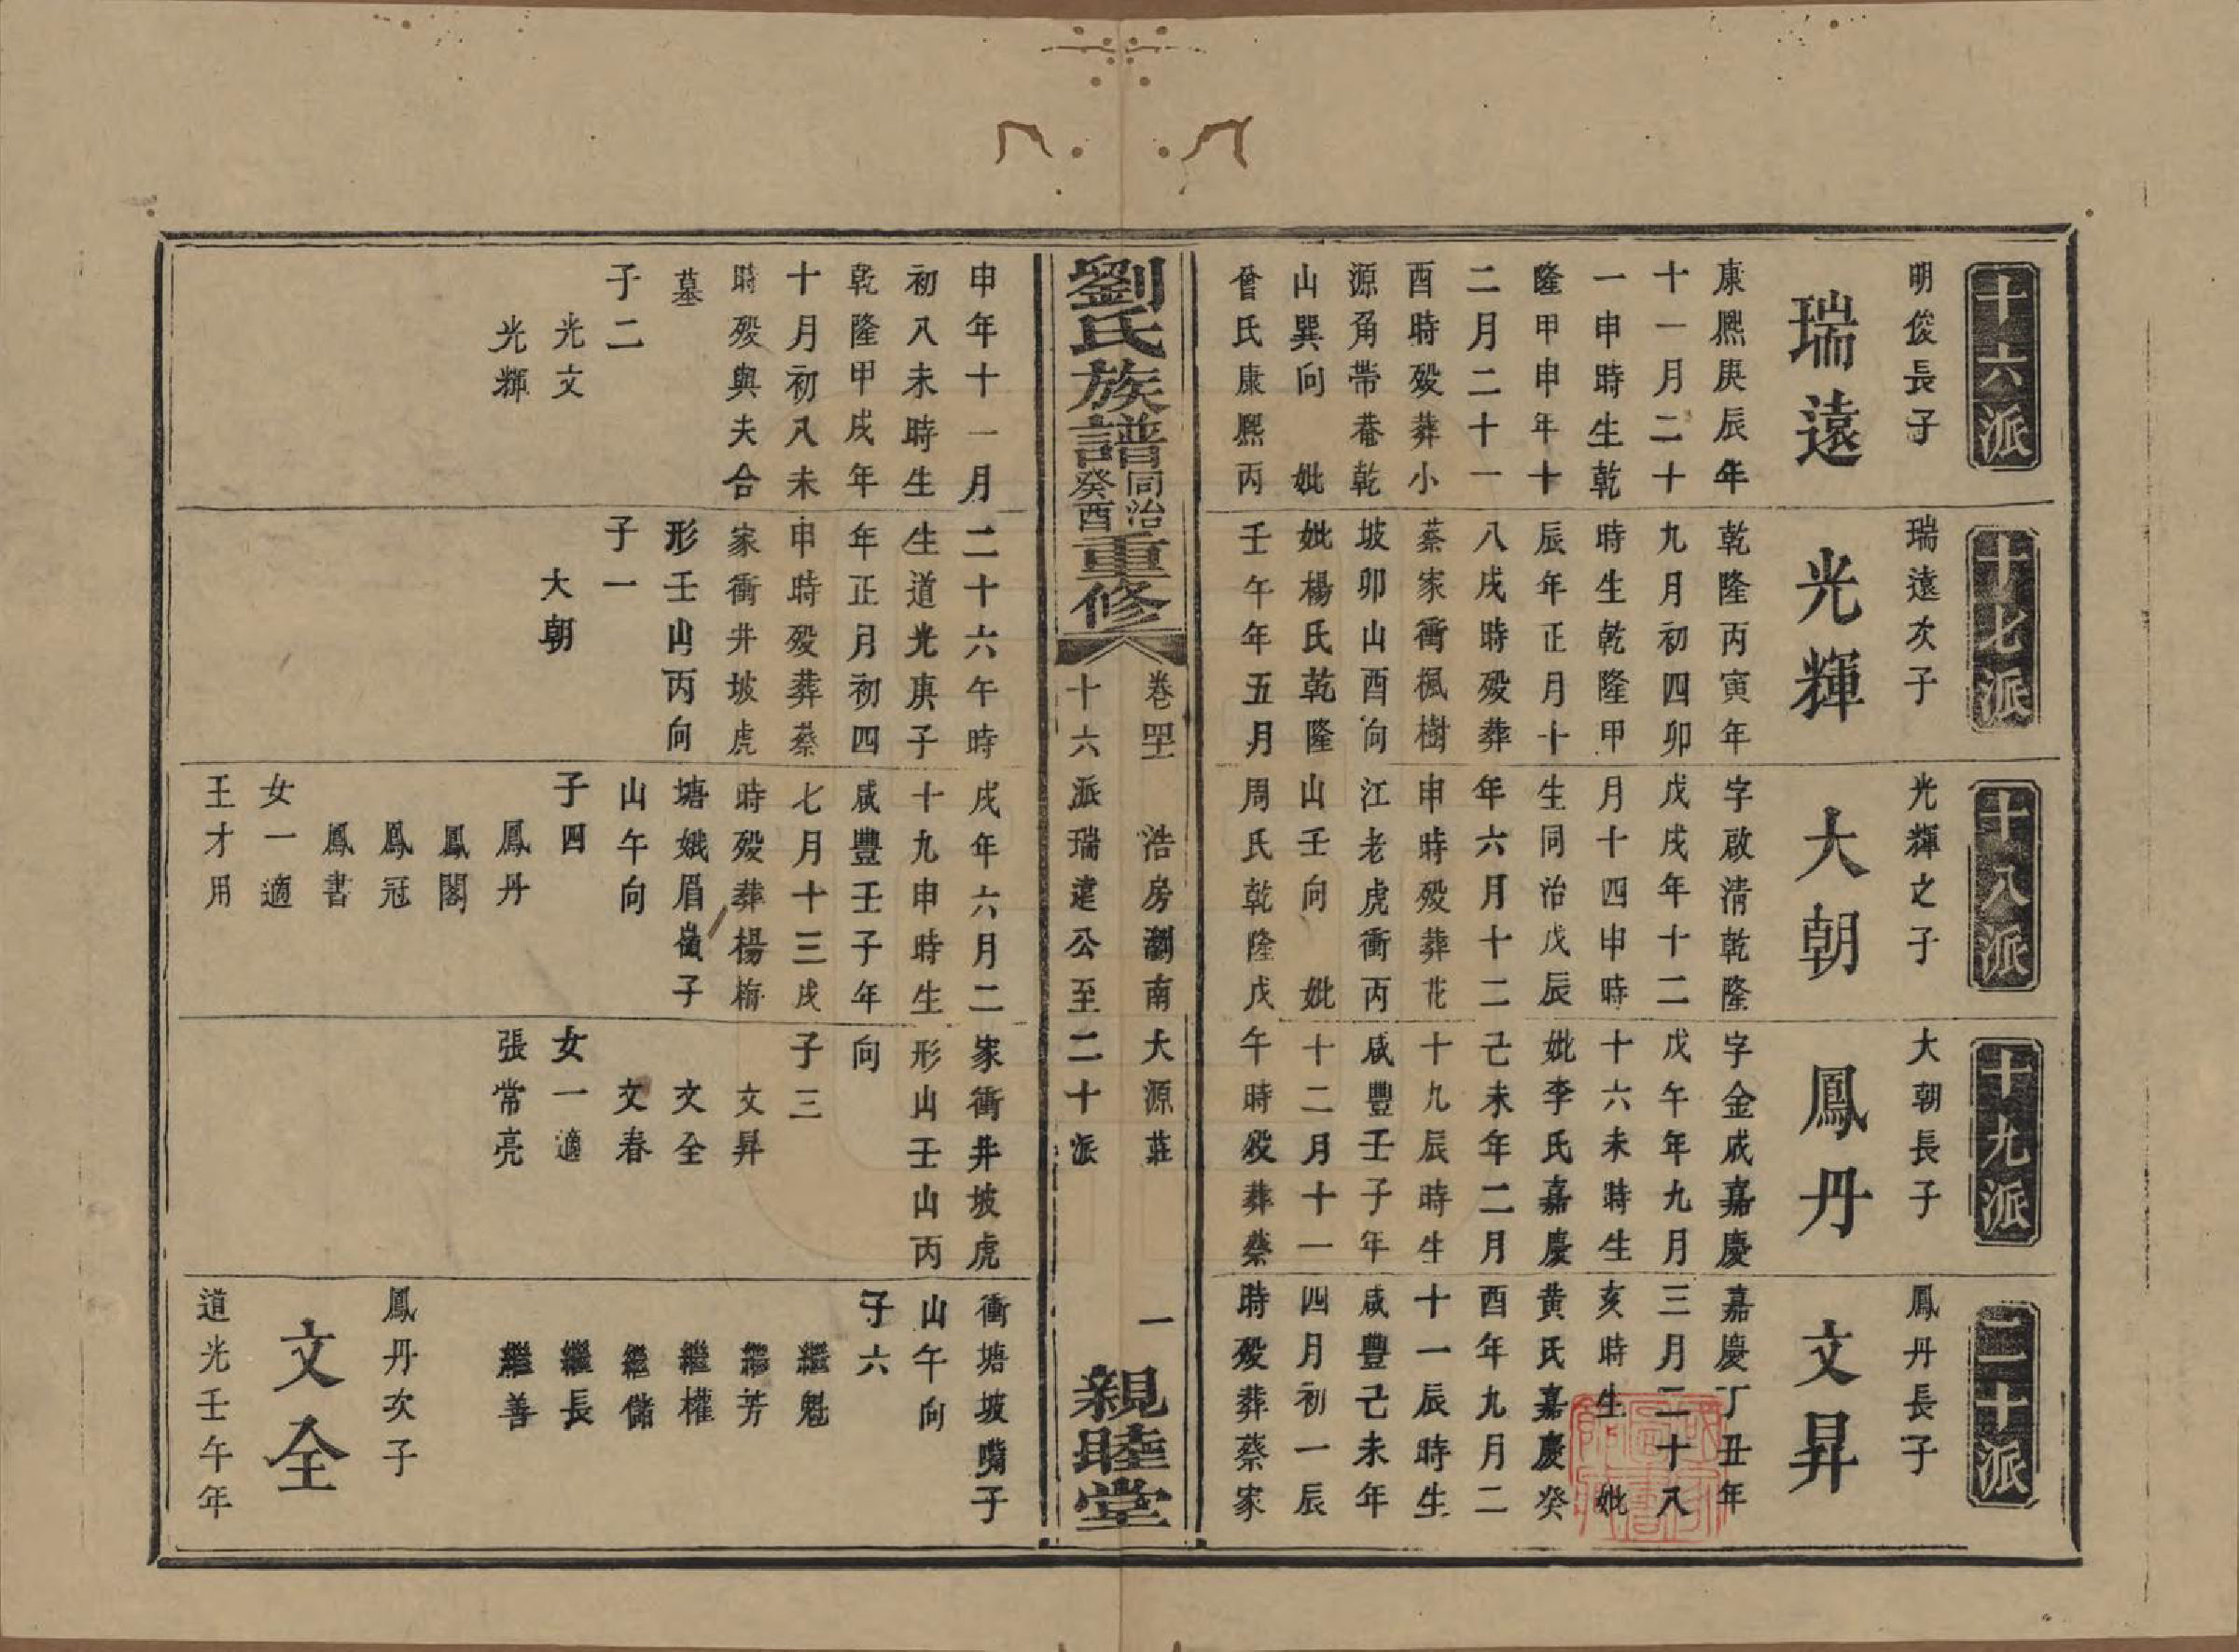 十六派
明俊長子
瑞遠
康熙庚辰年
十一月二十
一申時生乾
隆甲申年十
二月二十一
酉時殁葬小
源角帶菴乾
山巽向 妣
曾氏康熙丙
申年十一月
初八未時生
乾隆甲戌年
十月初八未
時殁與夫合
墓
子二
光文
光輝
十七派
瑞遠次子
光輝
乾隆丙寅年
九月初四卯
時生乾隆甲
辰年正月十
八戌時殁葬
蔡家衝楓樹
坡卯山酉向
妣楊氏乾隆
壬午年五月
二十六午時
生道光庚子
年正月初四
申時殁葬蔡
家衝井坡虎
形壬山丙向
子一
大朝
十八派
光輝之子
大朝
字啟淸乾隆
戊戌年十二
月十四申時
生同治戊辰
年六月十二
申時殁葬花
江老虎衝丙
山壬向 妣
周氏乾隆戊
戌年六月二
十九申時生
咸豐壬子年
七月十三戌
時殁葬楊梅
塘娥眉嶺子
山午向
子四
鳳丹
鳳閣
鳳冠
鳳書
女一適
王才用
十九派
大朝長子
鳳丹
字金成嘉慶
戊午年九月
十六未時生
妣李氏嘉慶
己未年二月
十九辰時生
咸豐壬子年
十二月十一
午時殁葬蔡
家衝井坡虎
形山壬山丙
向
子三
文昇
文全
文春
女一適
張常亮
二十派
鳳丹長子
文昇
嘉慶丁丑年
三月二十八
亥時生 妣
黄氏嘉慶癸
酉年九月二
十一辰時生
咸豐己未年
四月初一辰
時殁葬蔡家
衝塘坡嘴子
山午向
子六
繼魁
繼芳
繼權
繼儲
繼長
繼善
鳳丹次子
文全
道光壬午年
劉氏族譜 同治癸酉 重修
卷四 浩房瀏南大源莊 一
十六派瑞遠公至二十派
親睦堂